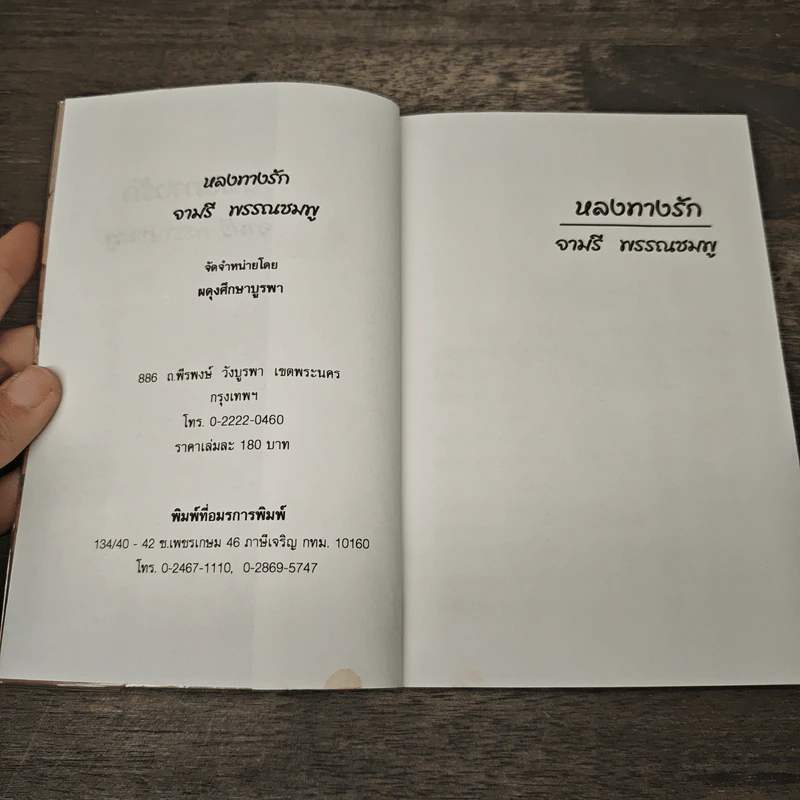 หลงทางรัก
จามรี พรรณชมพู
จัดจำหน่ายโดย
ผดุงศึกษาบูรพา
886 ถ.พีรพงษ์ วังบูรพา เขตพระนคร
กรุงเทพฯ
โทร. 0-2222-0460
ราคาเล่มละ 180 บาท
พิมพ์ที่อมรการพิมพ์
134/40 - 42 ซ.เพชรเกษม 46 ภาษีเจริญ กทม. 10160
โทร. 0-2467-1110, 0-2869-5747
หลงทางรัก
จามรี พรรณชมพู